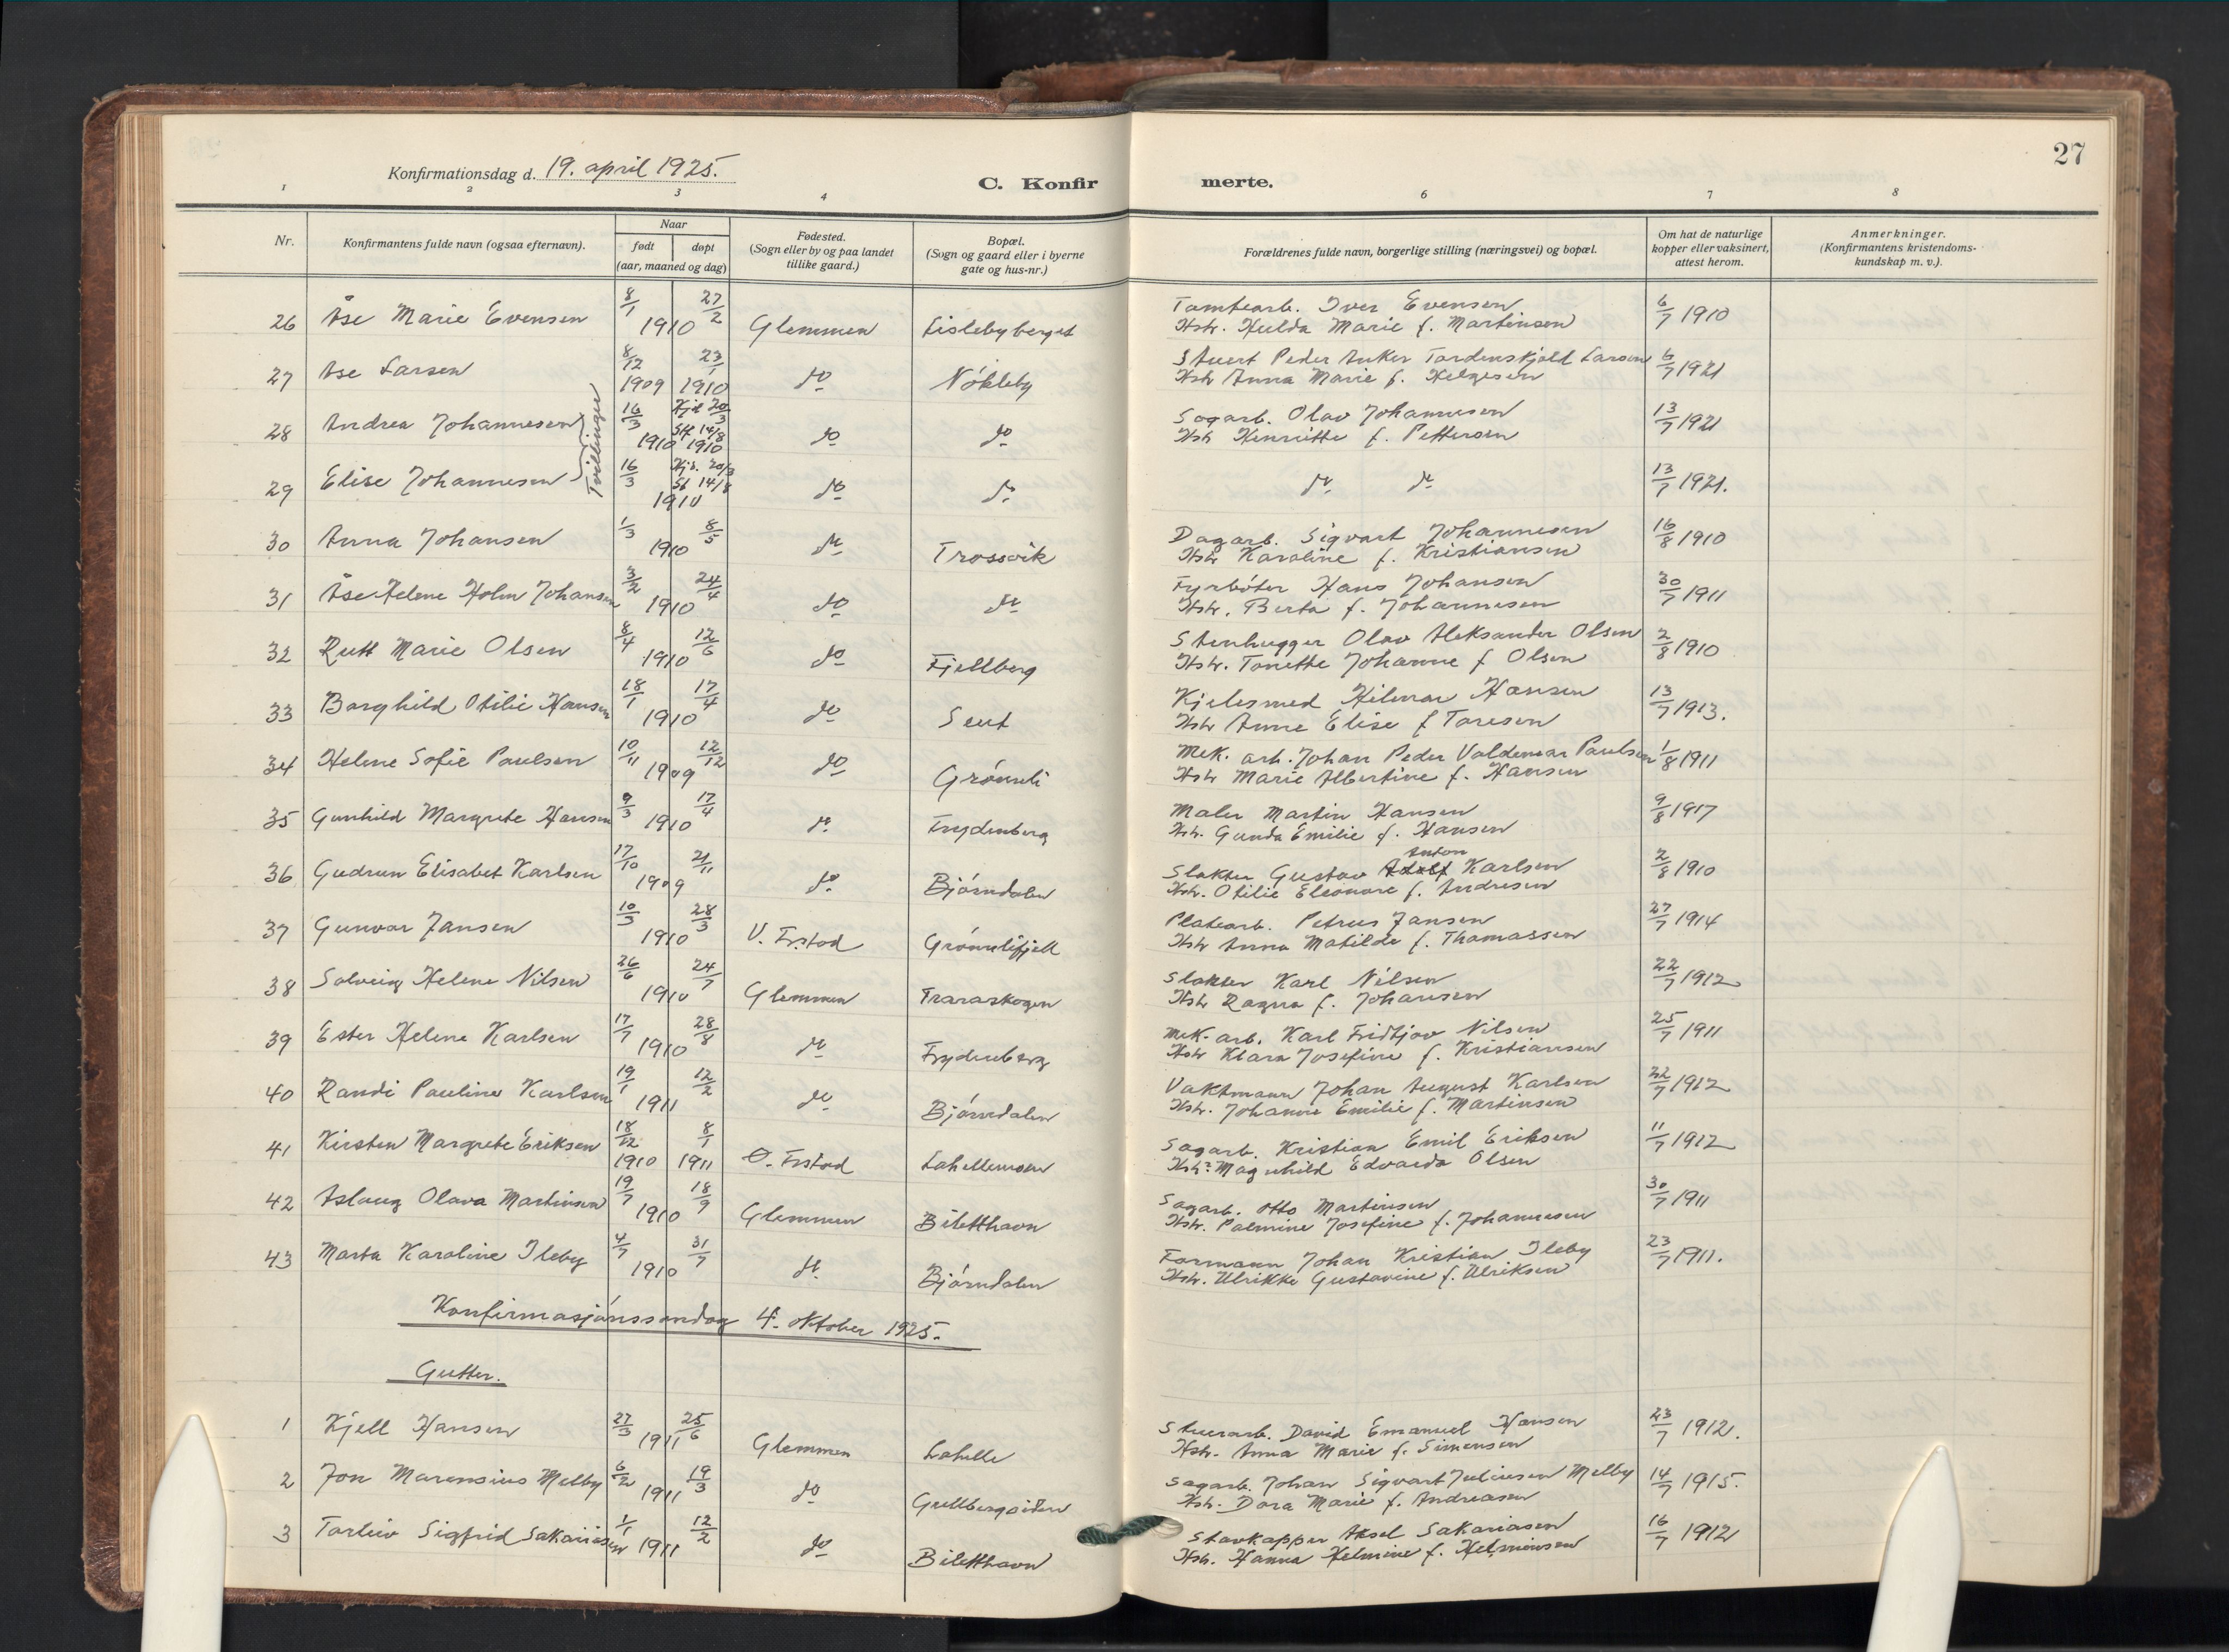 27
Konfirmationsdag d. 19. april 1925.
C. Konfir merte.
1 2 3 4 6 7 8
Nr.
Konfirmantens fulde navn (ogsaa efternavn).
Naar
født døpt
(aar, maaned og dag)
Fødested.
(Sogn eller by og paa landet
tillike gaard.)
Bopæl.
(Sogn og gaard eller i byerne
gate og hus-nr.)
Forældrenes fulde navn, borgerlige stilling (næringsvei) og bopæl.
Om hat de naturlige
kopper eller vaksinert,
attest herom.
Anmerkninger.
(Konfirmantens kristendoms-
kundskap m. v.).
26 Åse Marie Evensen 8/1 27/2 1910 Glemmen Lislebyberget
Tomtearb. Iver Evensen 6/7 1910
Hstr. Hulda Marie f. Martinsen
27 Åse Larsen 8/12 1909 23/1 1910 do Nökleby
Stuert Peder Anker Tordenskjold Larsen 6/7 1921
Hstr Anna Marie f. Helgesen
28 Andrea Johannesen 16/3 Hjd 20/3 Stf 14/8 1910 1910 do do
Tvillinger
Sagarb. Olav Johannesen 13/7 1921
Hstr Henriette f. Pettersen
29 Elise Johannesen 16/3 Hjd. 20/3 St 14/8 1910 do do
do do 13/7 1921.
30 Anna Johansen 1/3 8/5 1910 do Trossvik
Dagarb. Sigvart Johannesen 16/8 1910
Hstr Karoline f. Kristiansen
31 Åse Helene Holm Johansen 3/2 24/4 1910 do do
Fyrböter Hans Johansen 30/7 1911
Hstr. Berta f. Johannesen
32 Rutt Marie Olsen 8/4 12/6 1910 do Fjellberg
Stenhugger Olav Aleksander Olsen 2/8 1910
Hstr. Tonette Johanne f Olsen
33 Borghild Otilie Hansen 18/1 17/4 1910 do Seut
Kjelesmed Hilmar Hansen 13/7 1913.
Hstr Anne Elise f Toresen
34 Helene Sofie Paulsen 10/11 12/12 1909 do Grönneli
Mek. arb. Johan Peder Valdemar Paulsen 1/8 1911
Hstr Marie Albertine f. Hansen
35 Gunhild Margrete Hansen 9/3 17/4 1910 do Frydenberg
Maler Martin Hansen 9/8 1917
Hstr. Gunda Emilie f. Hansen
36 Gudrun Elisabet Karlsen 17/10 21/11 1909 do Björndalen
Anton
Slakter Gustav Adolf Karlsen 2/8 1910
Hstr. Otilie Eleonore f. Andresen
37 Gunvor Jansen 10/3 28/3 1910 V. Frstad Grönnlifjell
Platearb. Petrus Jansen 27/7 1914
Hstr Anna Matilde f. Thomassen
38 Solveig Helene Nilsen 26/6 24/7 1910 Glemmen Traraskogen
Slakter Karl Nilsen 22/7 1912
Hstr Ragna f. Johansen
39 Ester Helene Karlsen 17/7 28/8 1910 do Frydenberg
Mek. arb. Karl Fridtjov Nilsen 25/7 1911
Hstr Klara Josefine f. Kristiansen
40 Randi Pauline Karlsen 19/1 12/2 1911 do Björndalen
Vaktmann Johan August Karlsen 22/7 1912
Hstr. Johanne Emilie f. Martinsen
41 Kirsten Margrete Eriksen 18/12 1910 8/1 1911 Ö. Frstad Lahellemoen
Sagarb. Kristian Emil Eriksen 11/7 1912
Hstr. Magnhild Edvarda Olsen
42 Aslaug Olava Martinsen 19/7 18/9 1910 Glemmen Biletthavn
Sagarb. Otto Martinsen 30/7 1911
Hstr. Palmine Josefine f. Johannesen
43 Marta Karoline Ileby 4/7 31/7 1910 do Björndalen
Formann Johan Kristian Ileby 23/7 1911.
Hstr. Ulrikke Gustavine f. Ulriksen
Konfirmasjónssøndag 4. oktober 1925.
Gutter.
1 Kjell Hansen 27/3 25/6 1911 Glemmen Lahelle
Stuerarb. David Emanuel Hansen 23/7 1912.
Hstr. Anna Marie f. Simensen
2 Jon Marensius Melby 6/2 19/3 1911 do Gullbergsiden
Sagarb. Johan Sigvart Juliusen Melby 14/7 1915.
Hstr. Dora Marie f. Andreasen
3 Torleiv Sigfrid Sakariasen 1/1 12/2 1911 do Biletthavn
Stavkapper Aksel Sakariasen 16/7 1912
Hstr. Hanna Helmine f. Helmersen